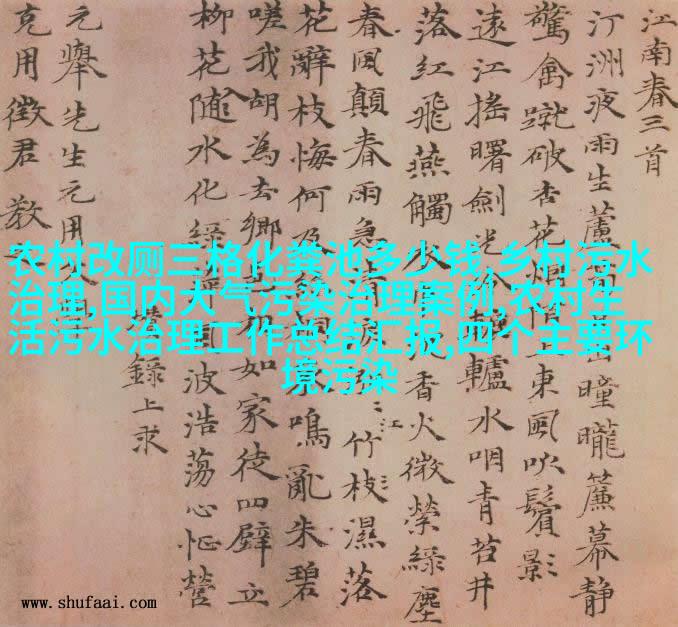 江南春三首
汀洲夜雨生蘆日曈曨簾幕静
驚禽蹴破杏花煙上東風吹鬢影
遠江搖曙劍光轤水咽青苔井
落紅飛燕觸香火微縈綠塵
春風顛春雨急清江竹枝濕落
花辭枝悔何及鳴亂朱碧
嗟我胡為去鄉相如家徒四壁立
柳花隨水化綠萍風波浩蕩心怔營
瓚錄上求
元舉先生元用
克用徵君教
农村改厕三格化粪池多少钱,乡村污水
治理,国内大气污染治理案例,农村生
活污水治理工作总结汇报,四个主要环
境污染
www.shufaai.com